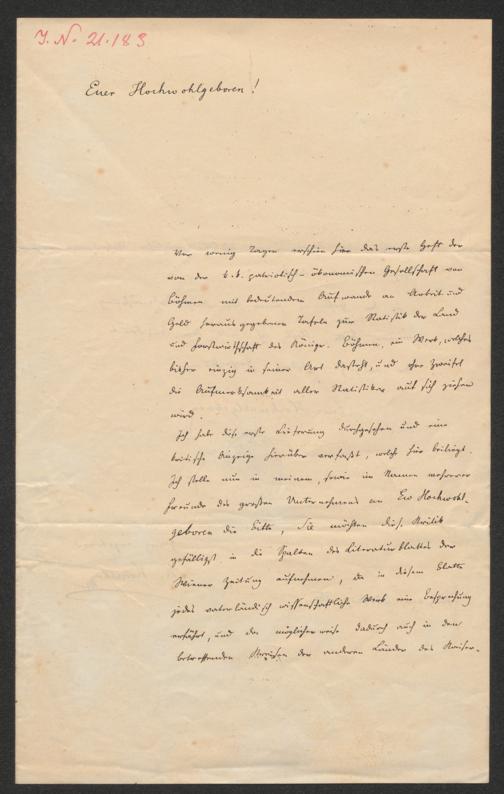 I. N. 21.183
Euer Hochwohlgeboren!
Vor wenig Tagen erschien hier das erste Heft der
von der k. k. patriotisch-ökonomischen Gesellschaft von
Böhmen mit bedeutendem Aufwande an Arbeit und
Geld herausgegebenen Tafeln zur Statistik der Land
und Forstwirthschaft des Königr. Böhmen, ein Werk, welches
bisher einzig in seiner Art dasteht, und ohne Zweifel
die Aufmerksamkeit aller Statistiker auf sich ziehen
wird.
Ich habe diese erste Lieferung durchgesehen und eine
kritische Anzeige hierüber verfaßt, welche hier beiliegt.
Ich stelle nun in meinem, sowie im Namen mehrerer
Freunde des großen Unternehmens an Eu Hochwohl-
geboren die Bitte, Sie möchten diese Kritik
gefälligst in die Spalten des Literaturblattes der
Wiener Zeitung aufnehmen, da in diesem Blatte
jedes vaterländisch wissenschaftliche Werk eine Besprechung
erfährt, und da möglicherweise dadurch auch in den
betreffenden Kreisen der anderen Länder des Kaiser-